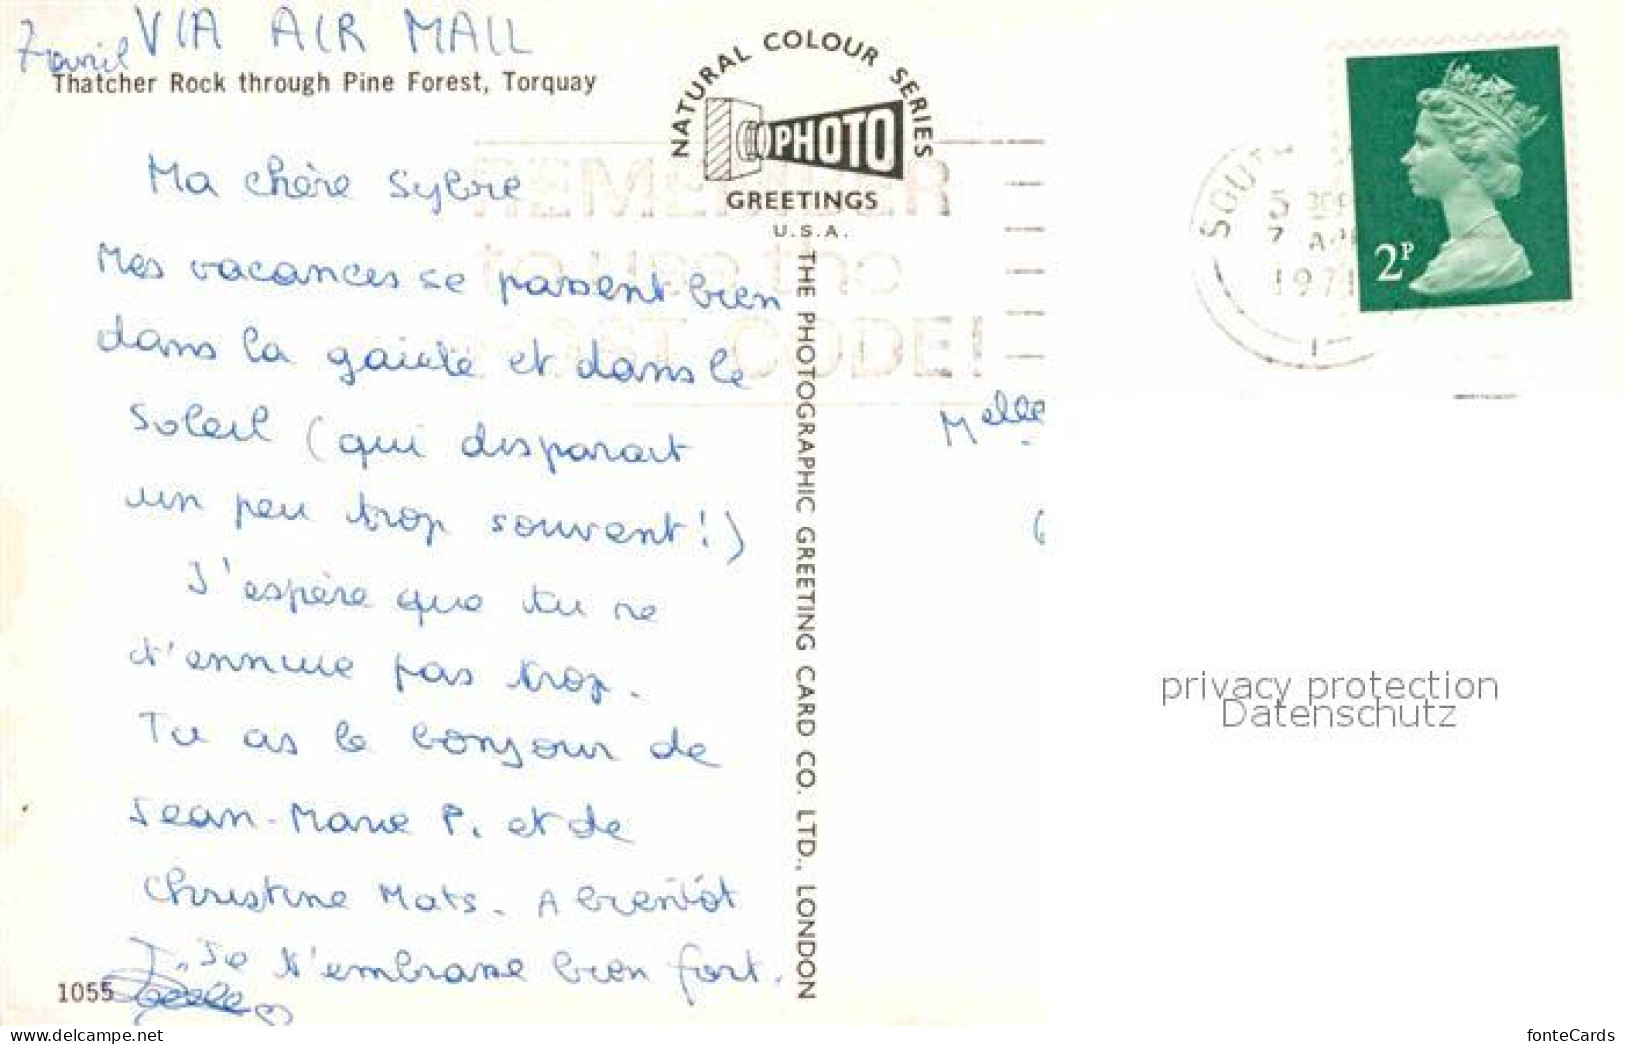 VIA AIR MAIL
7 avril
Thatcher Rock through Pine Forest, Torquay
Ma chère Sylvie
Mes vacances se passent bien
dans la gaieté et dans le
soleil (qui disparait
un peu trop souvent!)
J'espère que tu ne
t'ennuie pas trop.
Tu as le bonjour de
Jean-Marie P. et de
Christine Mats. A bientôt
Je t'embrasse bien fort.
1055
NATURAL COLOUR SERIES
PHOTO
GREETINGS
U.S.A.
THE PHOTOGRAPHIC GREETING CARD CO. LTD., LONDON
REMEMBER
to use the
POST CODE!
SOUTH
5 30PM
7 APR
1971
2P
Melle
privacy protection
Datenschutz
fonteCards